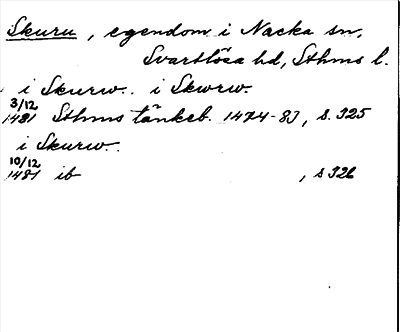 Skuru, egendom i Nacka sn,
Svartlösa hd, Sthms l.
i Skurw. i Skwrw.
3/12
1481 Sthms tänkeb. 1474-83, s. 325
i Skurw.
10/12
1481 ib , s 326